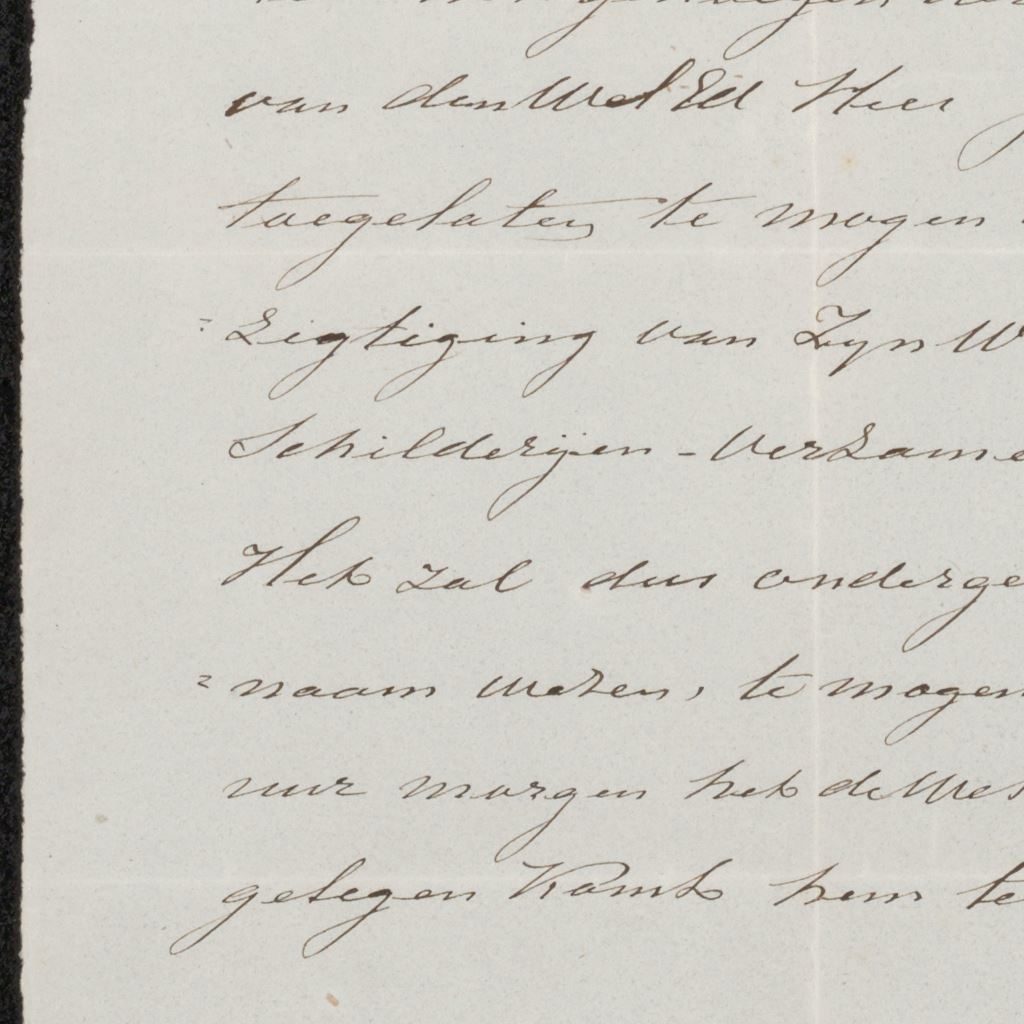 van den Wel Ed Heer
toegelaten te mogen
=zigtiging van Zyn W
Schilderijen - Verzame
Het zal dus onderge
=naam wezen, te mogen
uur morgen het de Wel
gelegen komt hem te